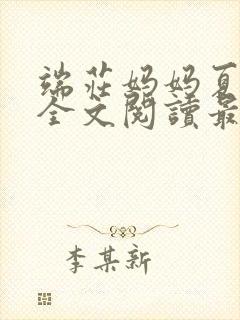 端莊妈妈夏
全文閱讀最
李某新